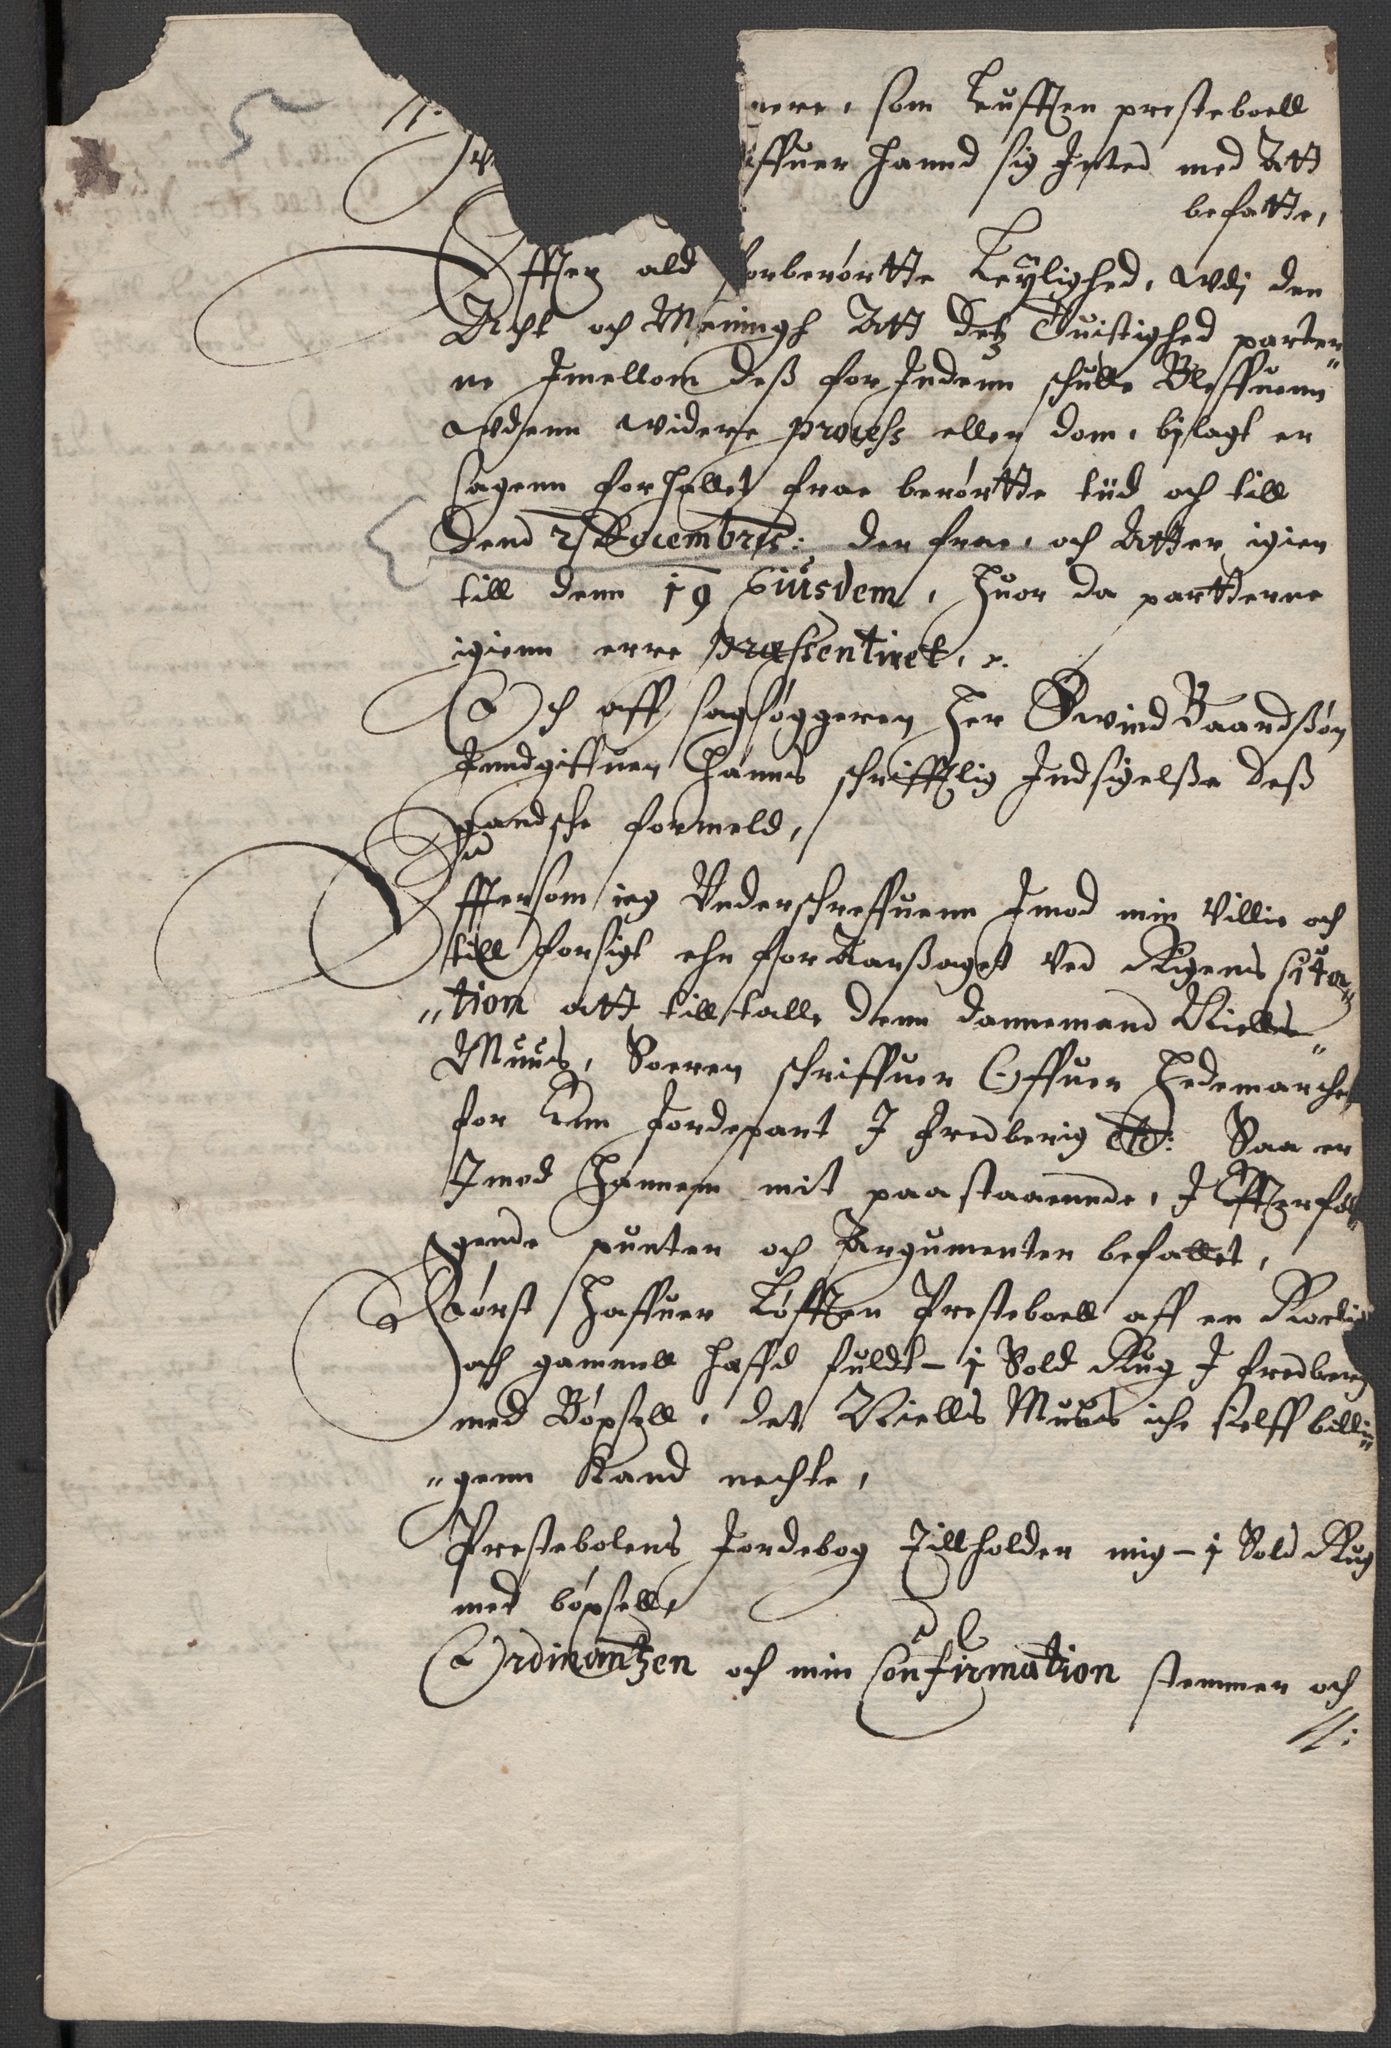 5
//:
nere, som Leufften presteboell
iffuer hannd sig Inted med Att
befatte,
Effter ald forberørtte Leylighed, Wdj den
Acht och Meningh Att detz Tuistighed parter„
ne Imellom deß for Indenn schulle Bleffuenn
Wdenn widere process eller dom, bijlagt er
sagenn forhollet frae berørtte tiid och till
Dend 2 Decembris: der frae, och Atter igien
till denn 19 Eiusdem, Huor da partterne
igienn erre præssentiret,
Och aff sagsøggeren Her Eivind Baardsßøn
Inndgiffuen Hanns schrifftlig Indsigelße deß
gandsche formeld,
Effttersom ieg Vnderschreffuenn Imod min Villie och
till forsigt ehr foraarßaget Ved Rigens sita„
„tion att tilltalle denn dannemand Niells
Muus, Soeren schriffuer Offuer Hedemarchen
for Enn Jordepart I Fredberig etc: Saa er
Imod Hannem mit paastaaennde, I Effterføl„
gende puncter och Argumenter befattet,
Først Haffuer Løfften Presteboell aff en Roelig
och gammell Haffd fuldt – 1 Sold Rug I fredberg
med Bøxsell, det Niells Muus iche sielff billi„
„genn Kand nechte,
Prestebolens Jordebog Tillholder mig – 1 Sold Rug
med bøxsell,
Ordinantzen och min Confirmation stemmer och
//: